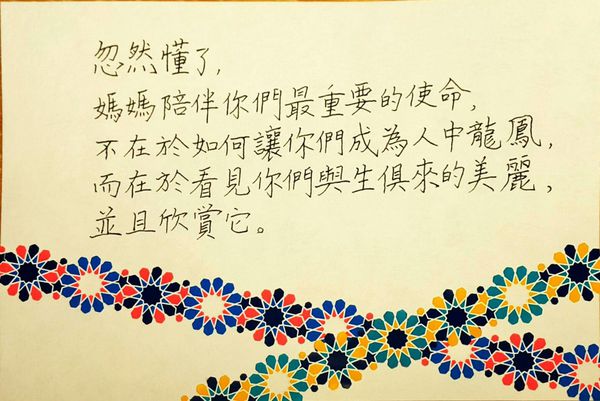 忽然懂了,
媽媽陪伴你們最重要的使命,
不在於如何讓你們成為人中龍鳳,
而在於看見你們與生俱來的美麗,
並且欣賞它。